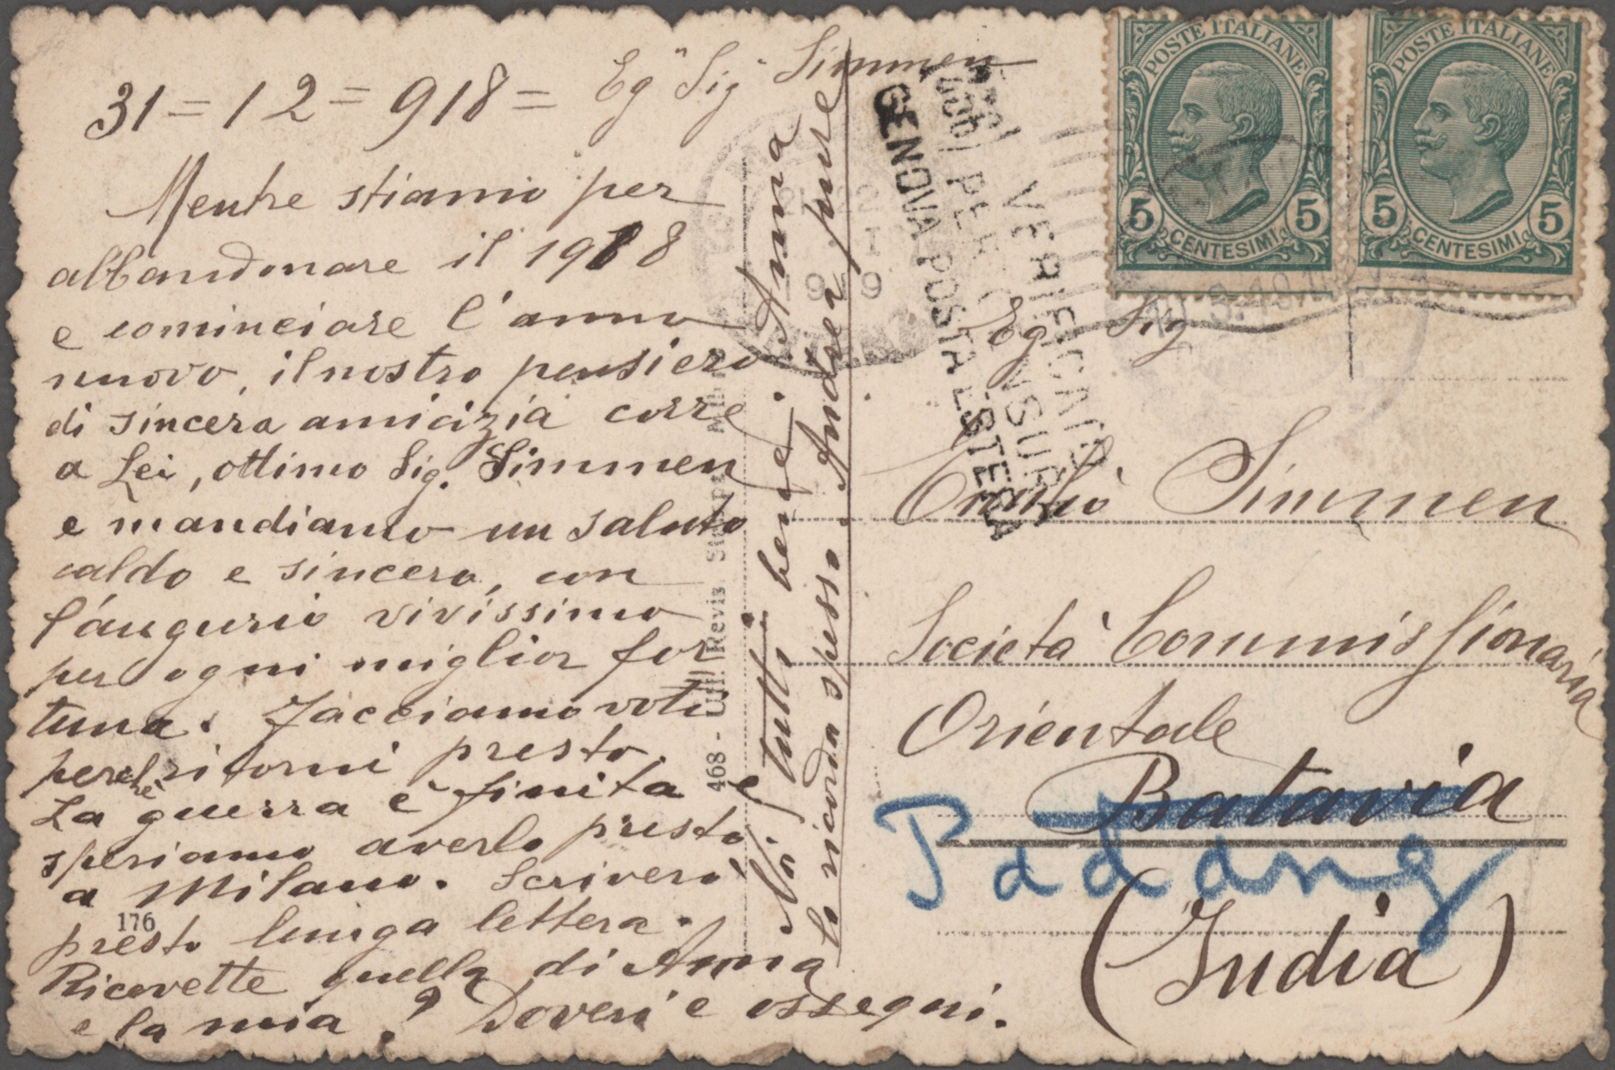 31 = 12 = 918 = Eg Sig Simmen
Mentre stiamo per
abbandonare il 1918
e cominciare l'anno
nuovo, il nostro pensiero
di sincera amicizia corre
a Lei, ottimo Sig. Simmen
e mandiamo un saluto
caldo e sincero, con
l'augurio vivissimo
per ogni miglior for
tuna. Facciamo voti
perchè ritorni presto.
La guerra è finita e
speriamo averlo presto
a Milano. Scriverò
presto lunga lettera.
Ricevette quella di Anna
e la mia? Doveri e ossequi.
Noi tutti bene. Anna
lo ricorda spesso. Andrea pure
176
468 - Uff. Revis. Stampa
POSTE ITALIANE
5 5
CENTESIMI
POSTE ITALIANE
5 5
CENTESIMI
VERIFICATO
PER CENSURA
GENOVA POSTA ESTERA
Eg Sig
Emilio Simmen
Società Commissionaria
Orientale
Batavia
Padang
(India)